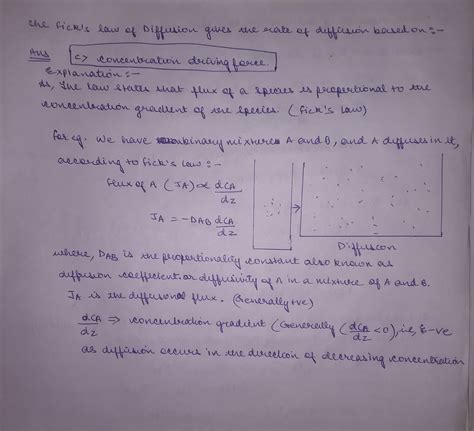 The Fick's law of Diffusion gives the rate of diffusion based on :-
Ans c) concentration driving force.
Explanation :-
As, The law states that flux of a species is proportional to the
concentration gradient of the species. (Fick's law)
for eg. We have binary mixture A and B, and A diffuses in it,
according to Fick's law :-
flux of A (JA) ∝ dCA/dz
JA = -DAB dCA/dz
Diffusion
where, DAB is the proportionality constant also known as
diffusion coefficient or diffusivity of A in a mixture of A and B.
JA is the diffusional flux. (Generally +ve)
dCA/dz ⇒ concentration gradient (Generally (dCA/dz < 0), i.e, is -ve
as diffusion occurs in the direction of decreasing concentration